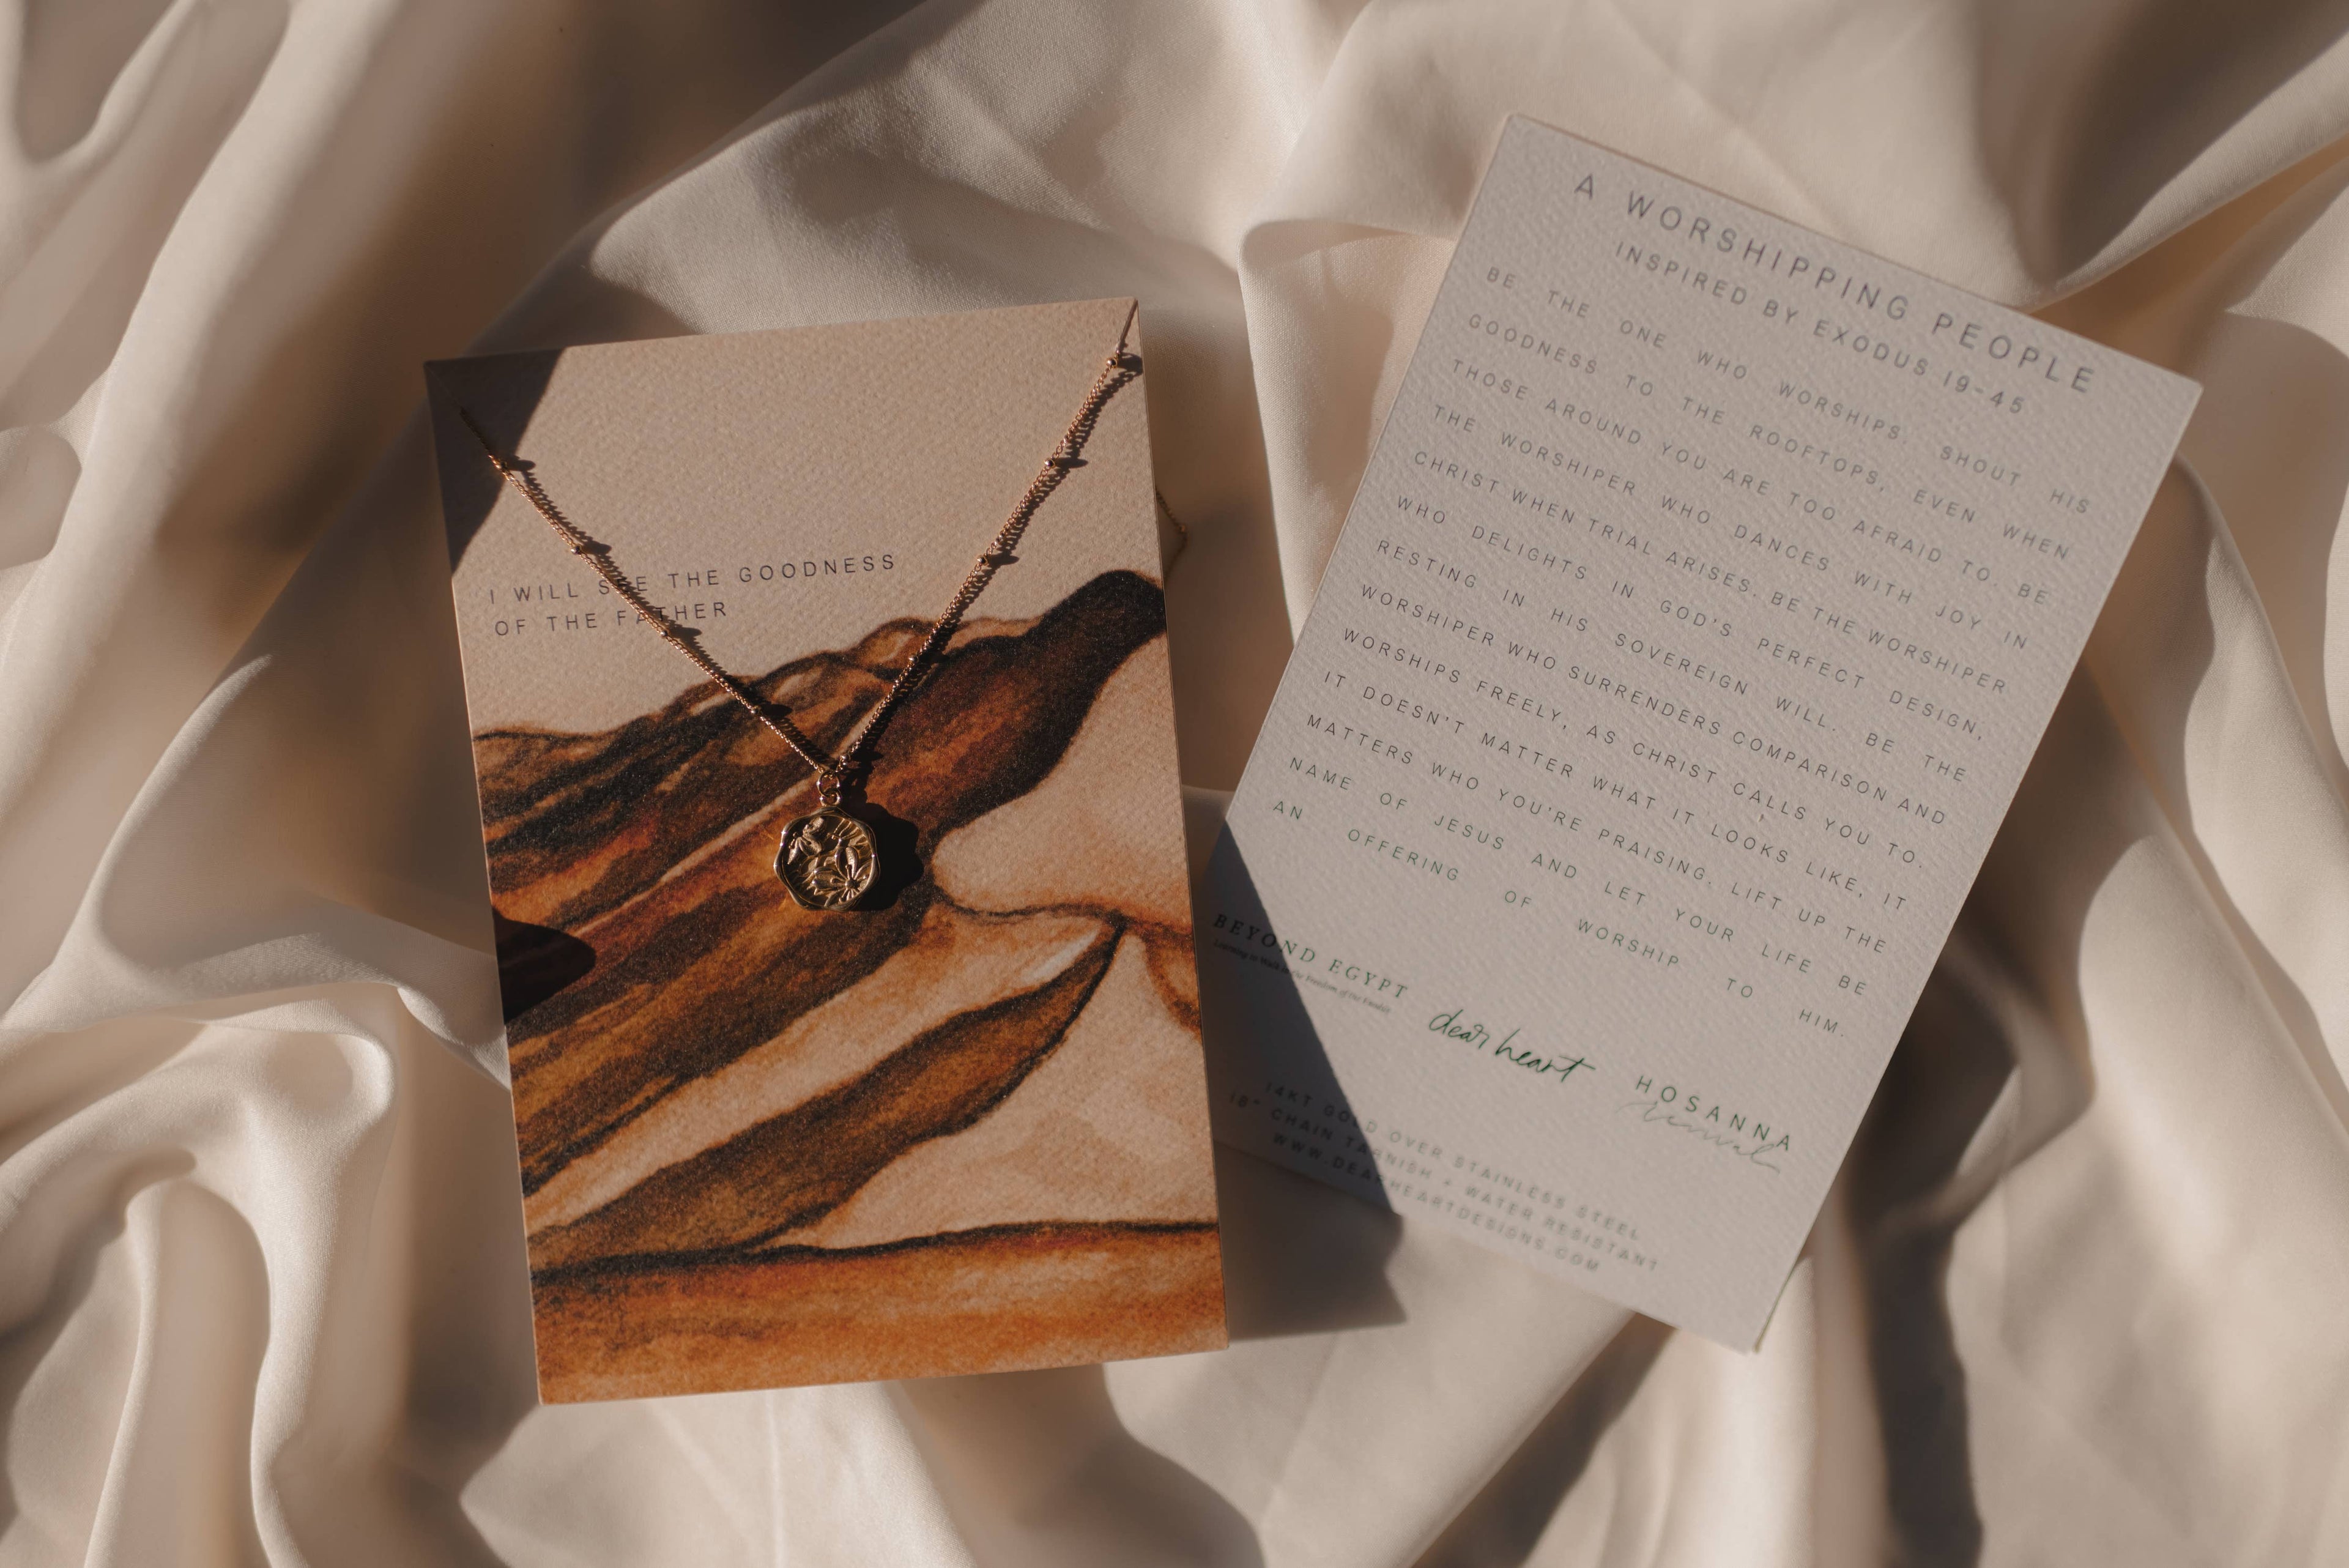 I WILL SEE THE GOODNESS
OF THE FATHER
A WORSHIPPING PEOPLE
INSPIRED BY EXODUS 19-45
BE THE ONE WHO WORSHIPS. SHOUT HIS
GOODNESS TO THE ROOFTOPS, EVEN WHEN
THOSE AROUND YOU ARE TOO AFRAID TO. BE
THE WORSHIPER WHO DANCES WITH JOY IN
CHRIST WHEN TRIAL ARISES. BE THE WORSHIPER
WHO DELIGHTS IN GOD'S PERFECT DESIGN,
RESTING IN HIS SOVEREIGN WILL. BE THE
WORSHIPER WHO SURRENDERS COMPARISON AND
WORSHIPS FREELY, AS CHRIST CALLS YOU TO.
IT DOESN'T MATTER WHAT IT LOOKS LIKE, IT
MATTERS WHO YOU'RE PRAISING. LIFT UP THE
NAME OF JESUS AND LET YOUR LIFE BE
AN OFFERING OF WORSHIP TO HIM.
BEYOND EGYPT
to Walk in the Freedom of the
dear heart
HOSANNA
revival
14KT GOLD OVER STAINLESS STEEL
18" CHAIN TARNISH + WATER RESISTANT
WWW.DEARHEARTDESIGNS.COM